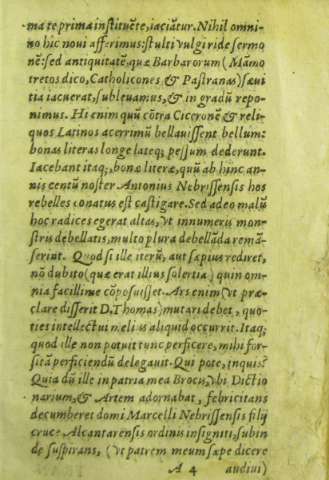 ma te prima instituēte, iaciātur. Nihil omni-
no hic novi afferimus: stulti vulgi ride sermo
nē: sed antiquitatē, quæ Barbarorum (Māmo
tretos dico, Catholicones, & Pastranas) sævi
tia iacuerat, sublevamus, & in gradū repo-
nimus. Hi enim quū cōtra Ciceronē & reli-
quos Latinos acerrimū bellavissent bellum:
bonas literas longe lateq; pessum dederunt.
Iacebant itaq; bonæ literæ, quū ab hinc an-
nis centū noster Antonius Nebrissensis hos
rebelles conatus est castigare. Sed adeo malū
hoc radices egerat altas, vt innumeris mon-
stris debellatis, multo plura debellāda remā-
serint. Quod si ille iterū, aut sæpius rediret,
nō dubito (quæ erat illius solertia) quin om-
nia facillime cōposuisset. Ars enim (vt præ-
clare disserit D. Thomas) mutari debet, quo-
ties intellectui melius aliquid occurrit. Itaq;
quod ille non potuit tunc perficere, mihi for-
sitā perficiendū delegavit. Qui pote, inquis?
Quia dū ille in patria mea Brocis, vbi Dictio
narium, & Artem adornabat, febricitans
decumberet domi Marcelli Nebrissensis filij
cruce Alcantarensis ordinis insigniti, subin
de suspirans, (vt patrem meum sæpe dicere
A 4 audivi)